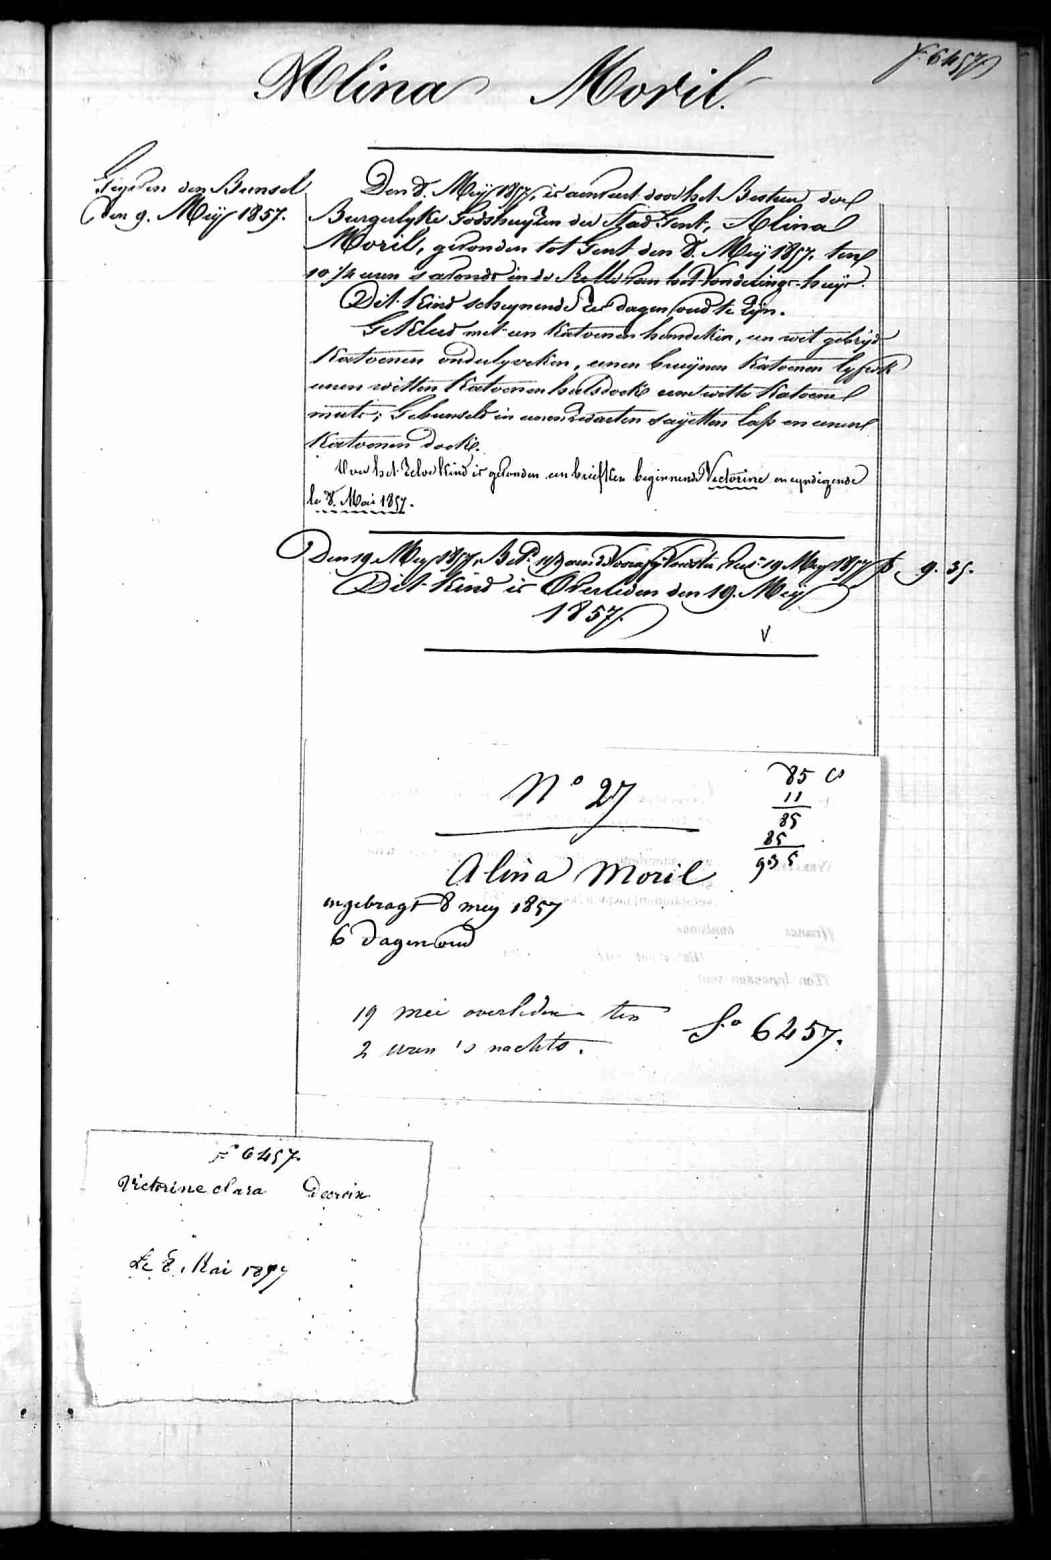 f. 6457
Alina Moril.
Gegeven den Bunsel
Den 9. Meÿ 1857.
Den 8. Meÿ 1857, is aenveert door het Bestuer der
Burgerlyke Godshuyzen der Stad Gent, Alina
Moril, gevonden tot Gent den 8. Meÿ 1857. ten
10 3/4 uren 's avonds in de Rolle van het Vondelings-huys.
Dit Kind schynende zes dagen oud te zyn.
Gekleed met een Katoenen hemdeken, een wit gebryd
Katoenen onderlyveken, eenen bruynen Katoenen lyfrok
eenen witten Katoenen halsdoek eene witte Katoene
muts; Gebunseld in eenen zwarten sayetten lap en eenen
Katoenen doek.
Voor het zelve Kind is gevonden een briefken beginnende Victorine en eyndigende
le 8. Mai 1857.
Den 19 Mey 1857, Bet. 19 Mey 1857 f. 9. 35.
Dit Kind is Overleden den 19. Meÿ
1857.
V
N° 27
85 c
11
85
85
935
Alina Moril
ingebragt 8 mey 1857
6 dagen oud
19 mei overleden ten
2 uren 's nachts.
f.° 6457.
f° 6457.
Victorine clara Decroix
Le 8. Mai 1857